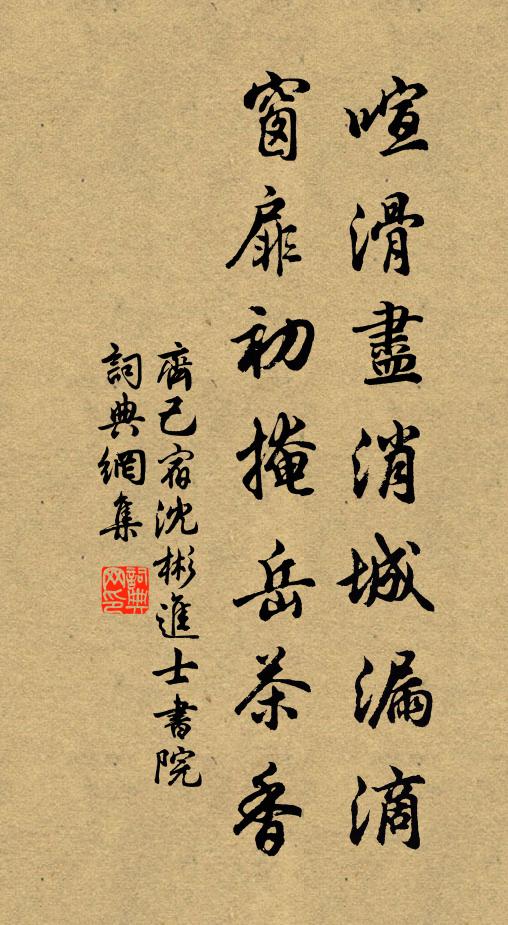 喧滑盡消城漏滴
窗扉初掩岳茶香
齊己宿沈彬進士書院
詞典網集
詞典网印